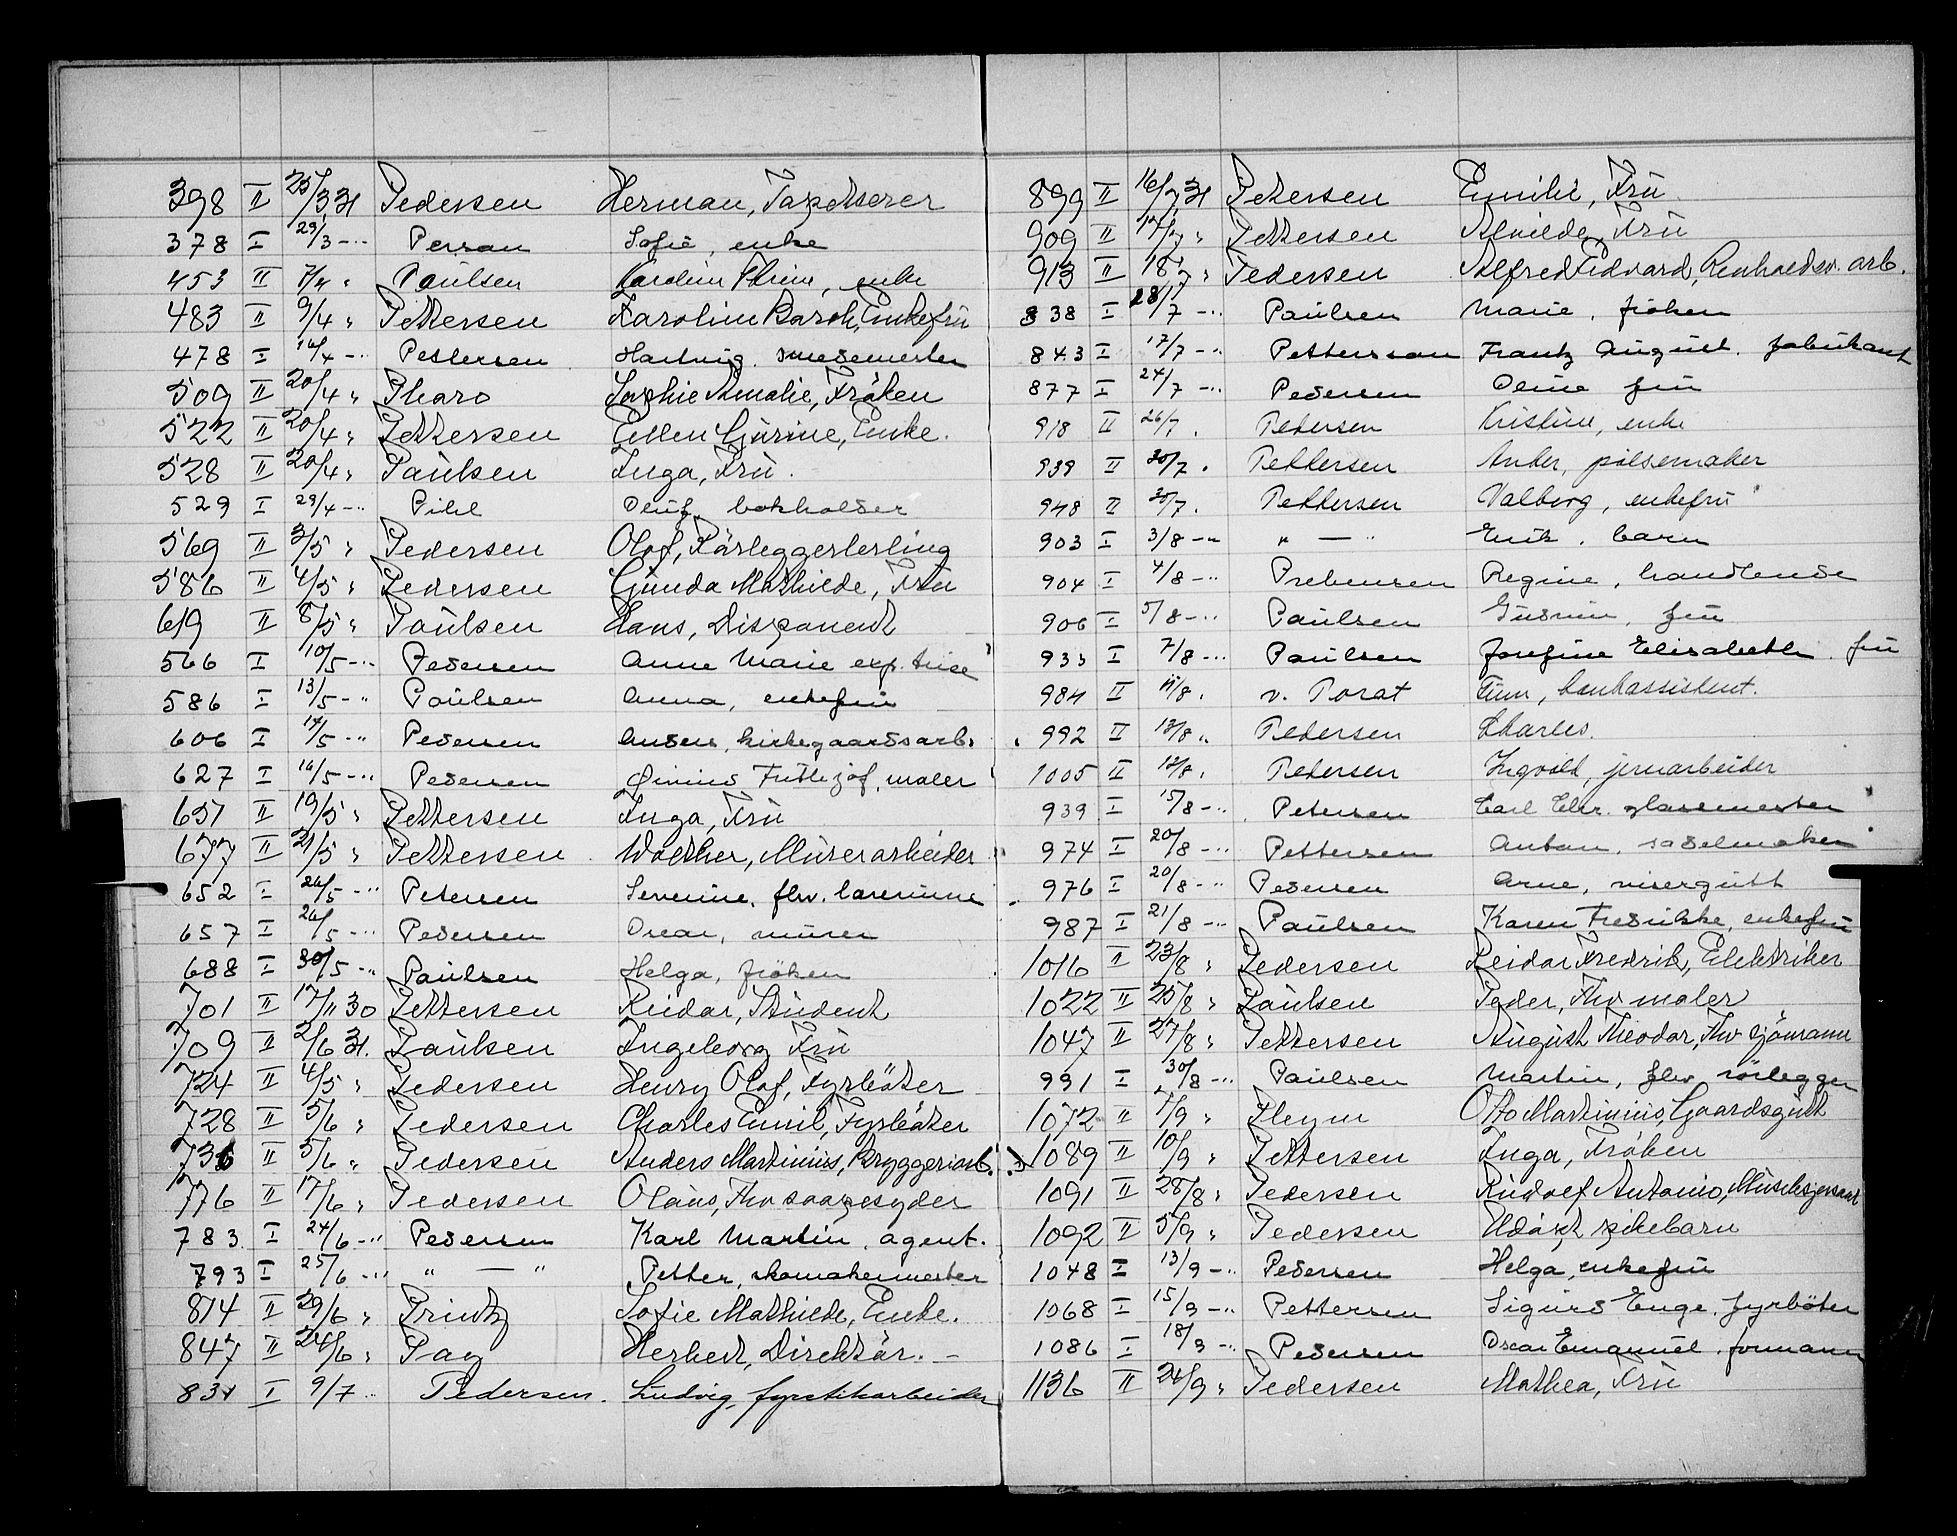 398 II 25/3 31 Pedersen Herman, Tapetserer
378 I 29/3 -"- Persson Sofie, enke
453 II 7/4 " Paulsen Karoline Thrine, enke
483 II 9/4 " Pettersen Karoline Barth, Enkefrü
478 I 16/4 -"- Pettersen Hartvig. smedemester
509 II 20/4 " Pharo Sophie Amalie, Fröken
522 II 20/4 " Pettersen Ellen Gürine, Enke.
528 II 20/4 " Paülsen Inga, Frü.
529 I 29/4 -"- Pihl Oluf. bokholder
569 II 3/5 " Pedersen Olaf, Rörleggerlerling
586 II 4/5 " Pedersen Günda Mathilde, Frü
619 II 8/5 " Paülsen Hans, Disponent
566 I 10/5 -"- Pedersen Anne Marie exp. trise
586 I 13/5 -"- Paülsen Anna, enkefrü
606 I 14/5 -"- Pedersen Anders, kirkegaardsarb.
627 I 16/5 -"- Pedersen Frithjof, maler
651 II 19/5 " Pettersen Inga, Frü
677 II 21/5 " Pettersen Walther, Mürerarbeider
652 I 26/5 -"- Petersen Severine, fhv. lærerinne
657 I 26/5 -"- Pedersen Oscar, mürer
688 I 30/5 -"- Paülsen Helga, fröken
701 II 17/11 30 Pettersen Reidar, Stüdent
709 II 2/6 31. Paülsen Ingeborg Frü
724 II 4/5 " Pedersen Henry Olaf, Fyrböter
728 II 5/6 " Pedersen Charles Emil, Fyrböter
736 II 5/6 " Pedersen Anders Martinius, Bryggeriarb.
776 II 17/6 " Pedersen Olaüs, Fhv saapesyder
783 I 24/6 -"- Pedersen Karl Martin, agent.
793 I 25/6 -"- " — " Petter, skomakermester
814 II 29/6 " Printz Sofie Mathilde, Enke.
847 II 24/6 " Pay Herbert, Direktör. -
831 I 9/7 " Pedersen. Ludvig, fyrstikarbeider
899 II 16/7 31 Petersen Emilie, Frü.
909 II 17/7 " Pettersen Alvilde, Frü
913 II 18/7 " Pedersen Alfred Edvard, Renholdsv. arb.
838 I 28/7 -"- Paülsen Marie, fröken
843 I 17/7 -"- Pettersson Frantz August. fabrikant
877 I 24/7 -"- Pedersen Oline frü
918 II 26/7 " Petersen Kristine, enke
939 II 30/7 " Pettersen Anker, pölsemaker
948 II 30/7 " Pettersen Valborg, enkefru
903 I 3/8 -"- " — " Erik. barn
904 I 4/8 -"- Prebensen Regine, handlende
906 I 5/8 -"- Paülsen Gudrun, frü
933 I 7/8 -"- Paülsen Josefine Elisabeth. frü
984 II 11/8 " v. Porat Finn, bankassistent.
992 II 13/8 " Pedersen Charles.
1005 II 12/8 " Petersen Ingvald, jernarbeider
939 I 15/8 -"- Petersen Carl Chr. glassmester
974 I 20/8 -"- Pettersen Anton, sadelmaker
976 I 20/8 -"- Pedersen Arne, visergütt
987 I 21/8 -"- Paülsen Karen Fredrikke, enkefrü
1016 II 23/8 " Pedersen Reidar Fredrik, Elektriker
1022 II 25/8 " Paülsen Peder, Fhv maler
1047 II 27/8 " Pettersen August Theodor, Fhv sjömann
991 I 30/8 -"- Paülsen Martin, fhv rörlegger
1072 II 7/9 " Pleym Otto Martinius, Gaardsgütt
1089 II 10/9 " Pettersen Inga, Fröken
1091 II 28/8 " Pedersen Rüdolf Antonio,
1092 II 5/9 " Pedersen Udöpt pikebarn
1048 I 13/9 -"- Pedersen Helga, enkefrü
1068 I 15/9 -"- Pettersen Sigurd Enge, fyrböter
1086 I 18/9 -"- Pedersen Oscar Emanuel. formann
1136 II 26/9 " Pedersen Mathea, Frü